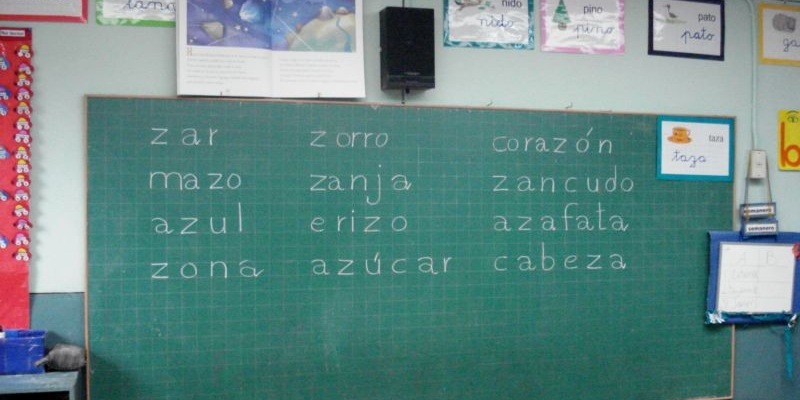 nido
nido
pino
pino
pato
pato
zar zorro corazón
mazo zanja zancudo
azul erizo azafata
zona azúcar cabeza
taza
taza
semanero
semanero
A B
b